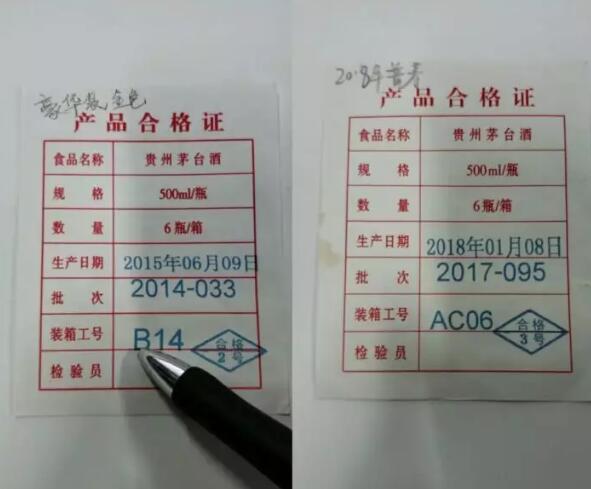 豪华款金色
产品合格证
食品名称 贵州茅台酒
规 格 500ml/瓶
数 量 6瓶/箱
生产日期 2015年06月09日
批 次 2014-033
装箱工号 B14
合格
2号
检验员
2018年普春
产品合格证
食品名称 贵州茅台酒
规 格 500ml/瓶
数 量 6瓶/箱
生产日期 2018年01月08日
批 次 2017-095
装箱工号 AC06
合格
3号
检验员